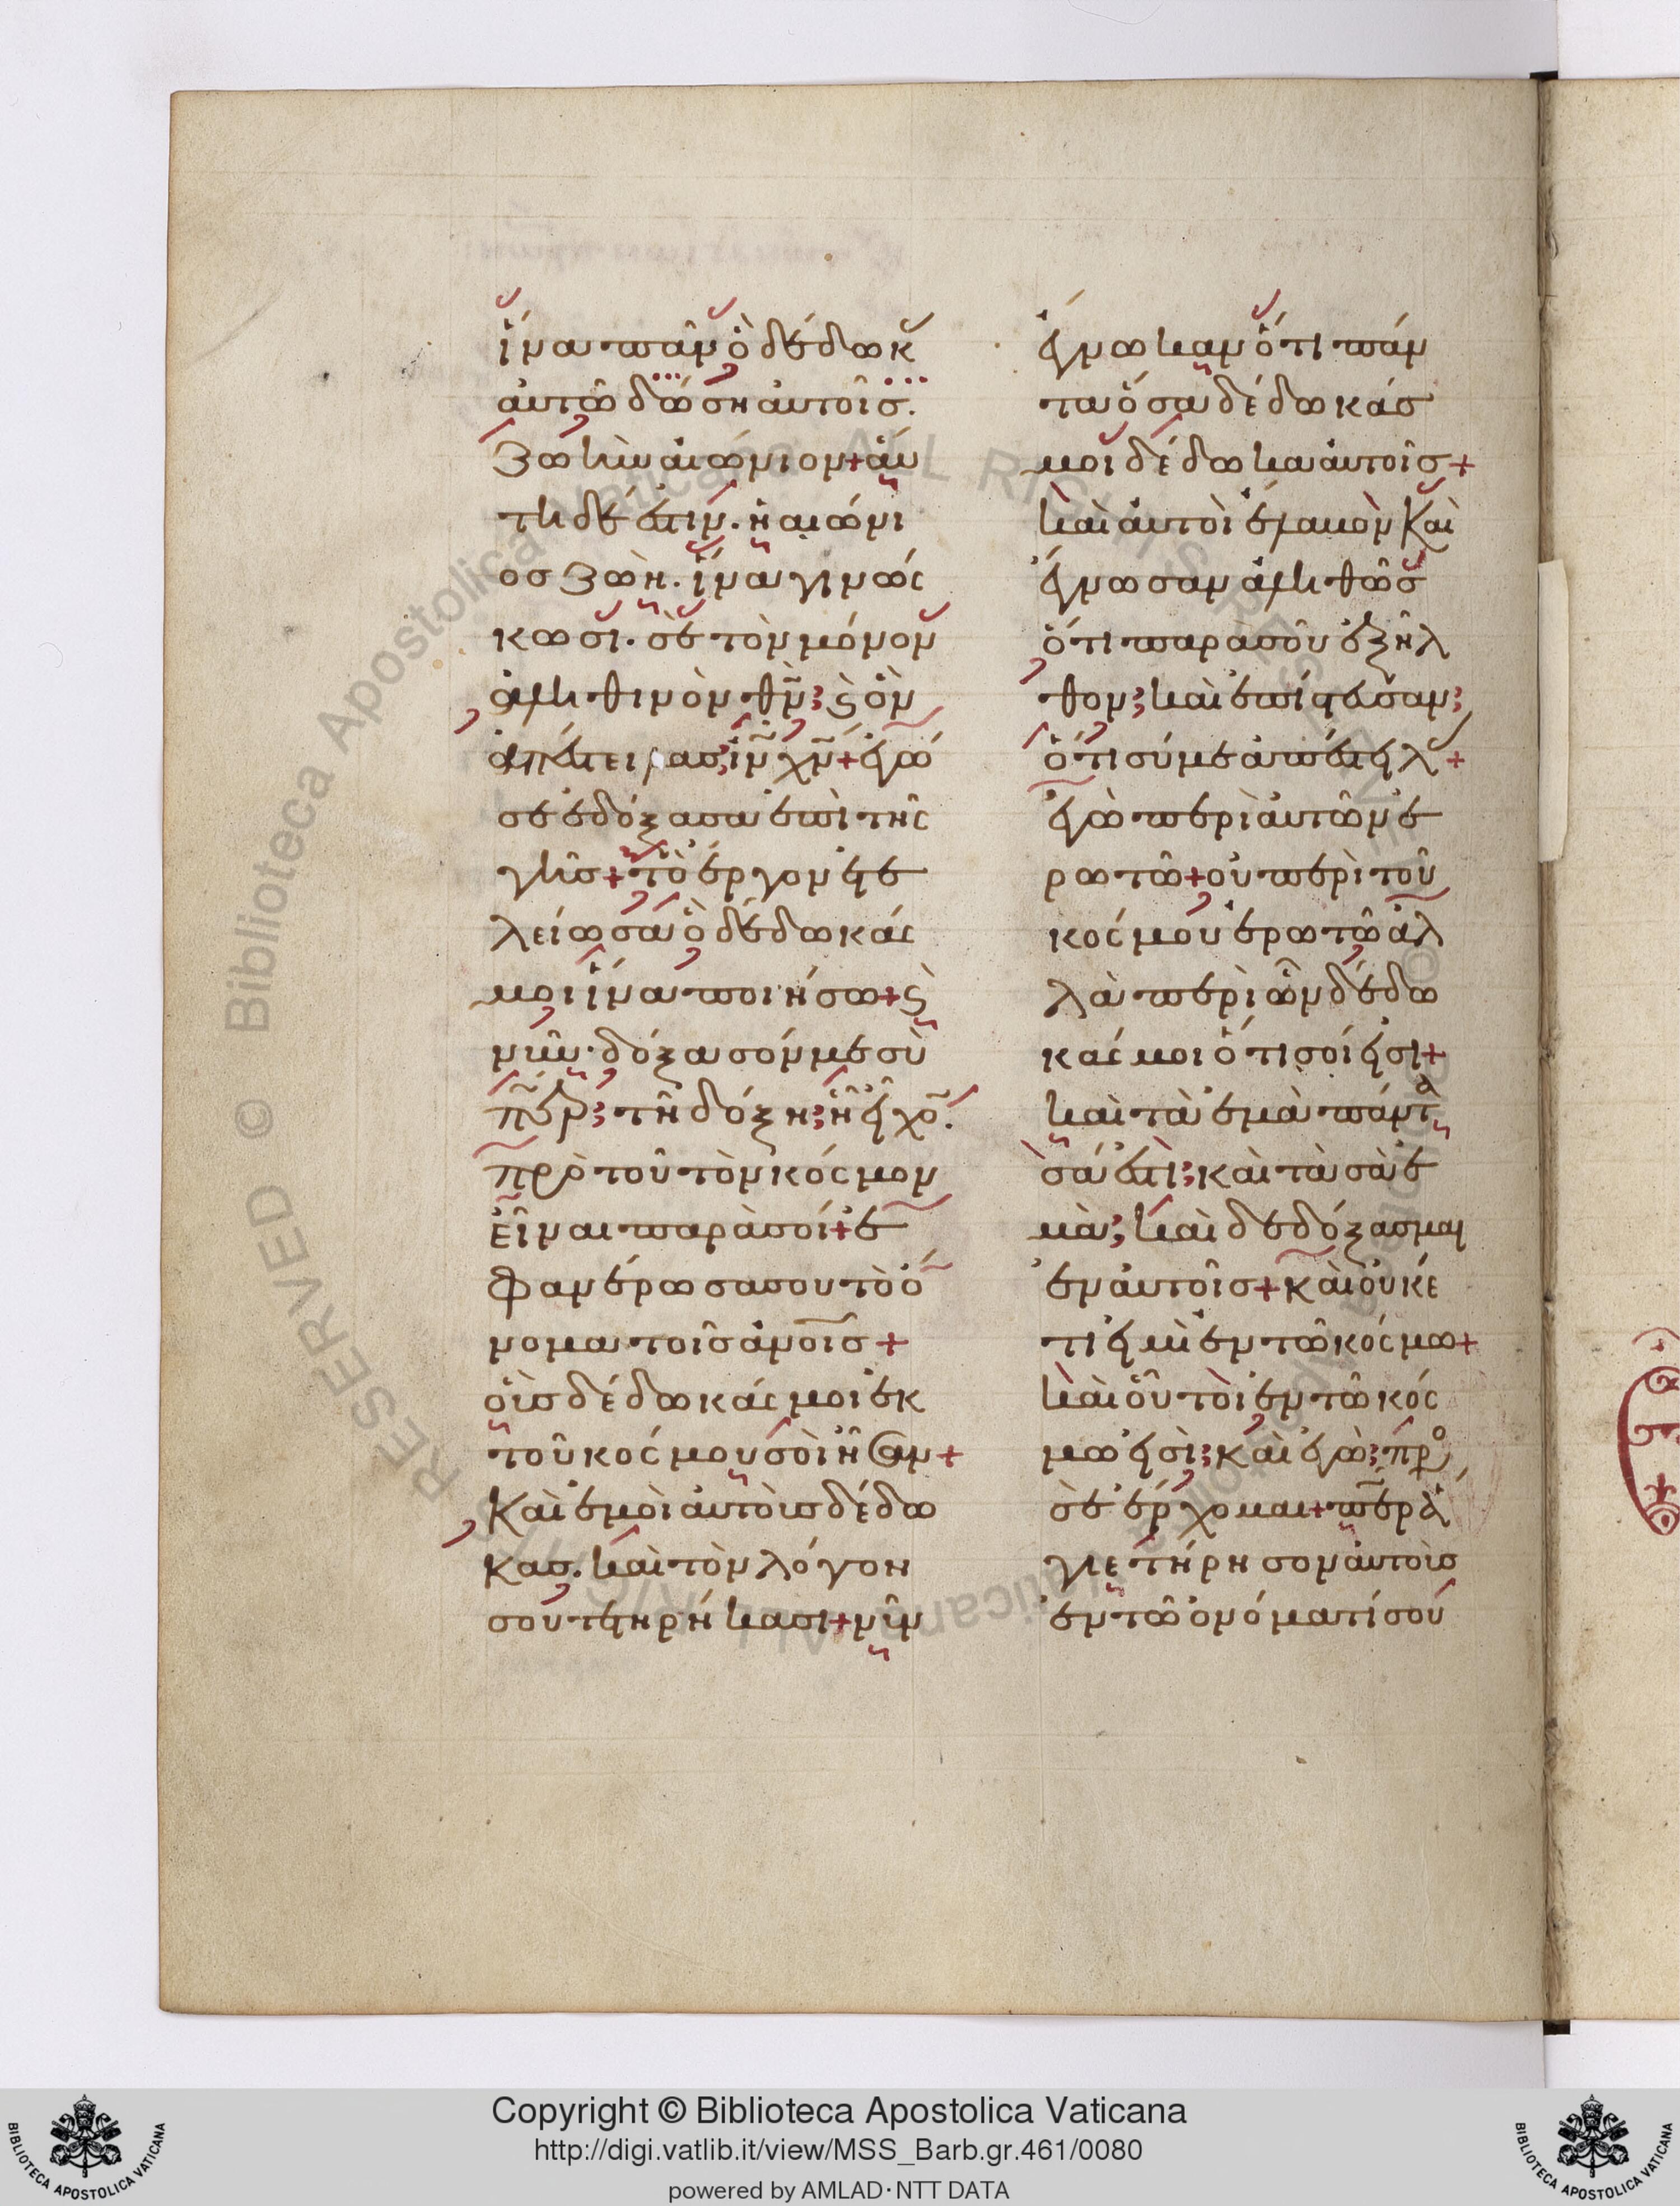 ἵνα πᾶν ὃ δέδωκ
αὐτῶ δώση αὐτοῖσ.
ζωὴν αἰώνιον + αὕ
τη δέ ἐστιν. ἡ αἰώνι
οσ ζωὴ. ἵνα γινώσ
κωσι. σὲ τὸν μόνον
ἀληθινὸν θν̄; ϗ ὃν
ἀπέστειλασ; ιν̄ χν̄ + ἐγώ
σε ἐδόξασα ἐπὶ τῆς
γῆσ + τὸ ἔργον ἐτε
λείωσα ὃ δέδωκάς
μοι ἵνα ποιήσω + ϗ
νῦν· δόξασόν με σὺ
περ̄; τῆ δόξη; ἧ εἶχο̄.
πρὸ τοῦ τὸν κόσμον
εἶναι παρὰ σοί + ἐ
φανέρωσα σου τὸ ὄ
νομα τοῖσ ἀνοισ̄ +
οὓσ δέδωκάς μοι ἐκ
τοῦ κόσμου σοὶ ἦσαν +
Καὶ ἐμοὶ αὐτοὺσ δέδω
κασ. καὶ τὸν λόγον
σου τετηρήκασι + νῦν
ἔγνωκαν ὅτι πάν
τα ὅσα δέδωκάσ
μοι δέδωκα αὐτοῖσ +
καὶ αὐτοὶ ἔλαβον Καὶ
ἔγνωσαν ἀληθῶσ
ὅτι παρα σοῦ ἐξῆλ
θον; καὶ ἐπίστευσαν;
ὅτι σύ με ἀπέστειλ +
ἐγὼ περὶ αὐτῶν ἐ
ρωτῶ + οὐ περὶ τοῦ
κόσμου ἐρωτῶ ἀλ
λὰ περὶ ὧν δέδω
κάς μοι ὅτι σοί εἰσι +
καὶ τὰ ἐμὰ πάντα
σά ἐστὶ; καὶ τὰ σὰ ἐ
μὰ; καὶ δεδόξασμαι
ἐν αὐτοῖσ + καὶ οὐκέ
τι εἰμὶ ἐν τῶ κόσμω +
καὶ οὗτοι ἐν τῶ κόσ
μω εἰσὶ; καὶ ἐγὼ; πρό
σὲ ἔρχομαι + περ̄ ἅ
γιε τήρησον αὐτοὺσ
ἐν τῶ ὀνόματί σου
Copyright © Biblioteca Apostolica Vaticana
http://digi.vatlib.it/view/MSS_Barb.gr.461/0080
powered by AMLAD·NTT DATA